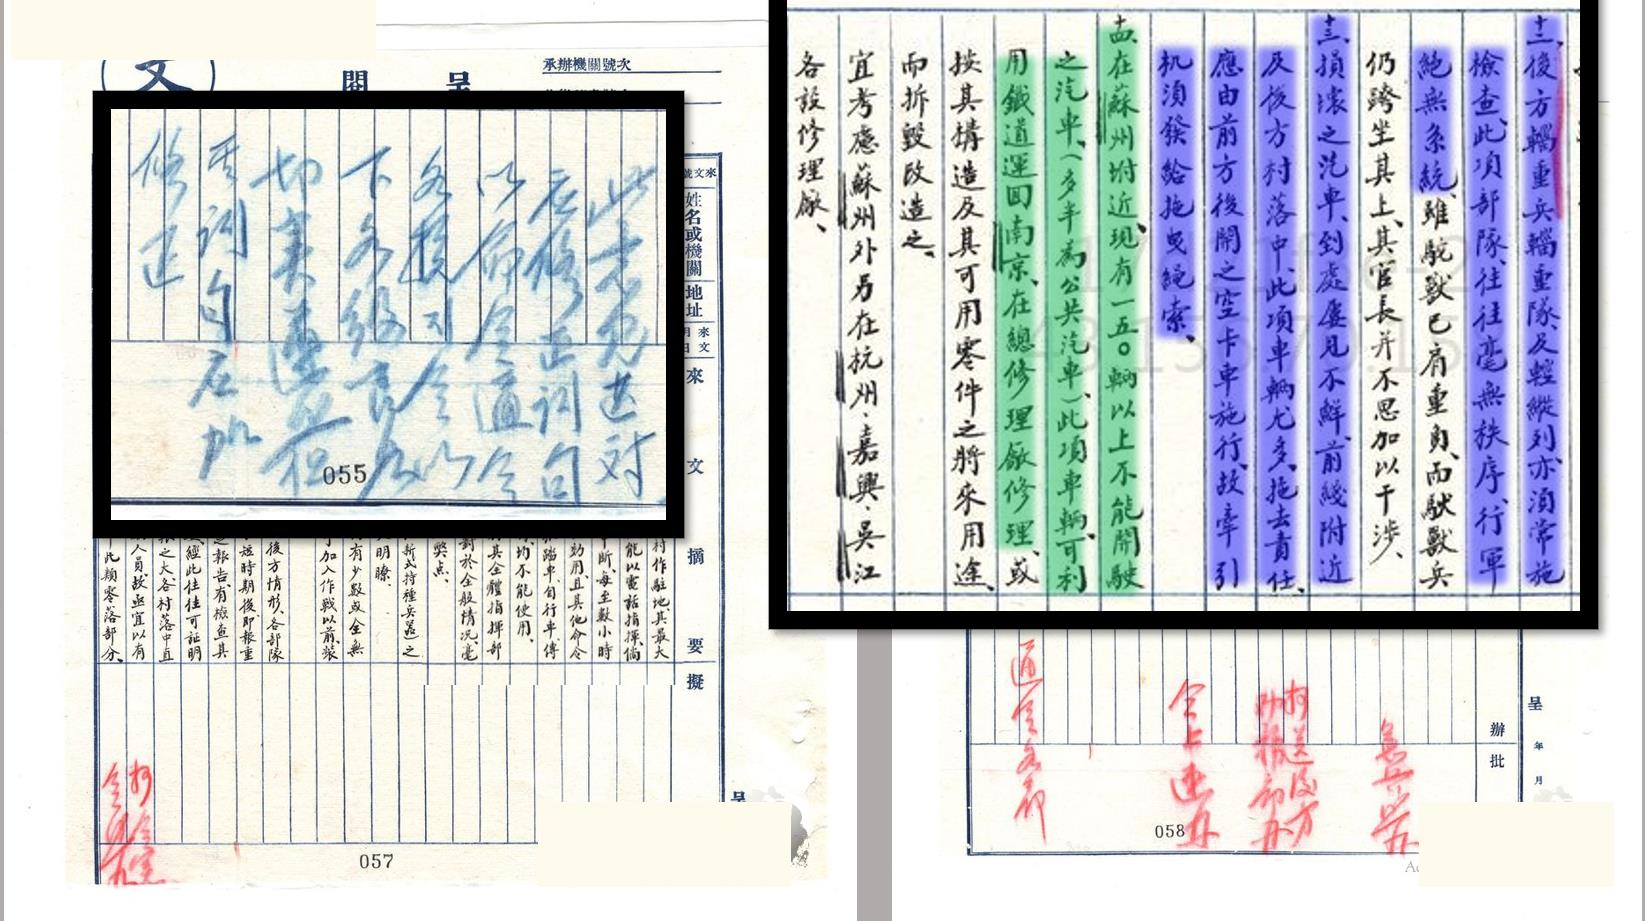 承辦機關號次
呈
閱
文
來文號
姓名或機關
地址
來文
月日
來
文
摘
要
擬
應修正詞句
以命令通令
下各級長官
切實遵照但
其詞句應加
修正
055
村作駐地其最大
能以電話指揮、倘
中斷、每至數小時
効用且其他命令
踏車、自行車傳
均不能使用、
具全體指揮部
對於全般情况、毫
弊点、
新式特種兵器)之
明瞭、
有少數或全無
加入作戰以前、裝
後方情形、各部隊
短時期後即報重
之報告、有檢查其
經此往往可証明
之大各村落中直
人員、故亟宜以有
此類零落部分、
057
十二、後方輜重兵輜重隊、及輕縱列、亦須常施
檢查、此項部隊、往往毫無秩序、行軍
絕無系統、雖馱獸已肩重負、而馱獸兵
仍跨坐其上、其官長并不思加以干涉、
十三、損壞之汽車、到處屢見不鮮、前綫附近
及後方村落中、此項車輛尤多、拖去責任、
應由前方後開之空卡車施行、故牽引
机須發給拖曳繩索、
十四、在蘇州附近、現有一五〇輛以上不能開駛
之汽車、(多半為公共汽車)此項車輛、可利
用鐵道運回南京、在總修理廠修理、或
按其構造及其可用零件之將來用途、
而拆毀改造之、
宜考慮蘇州外另在杭州、嘉興、吳江
各設修理廠、
呈
年
月
辦
批
令上速辦
通令各部
058